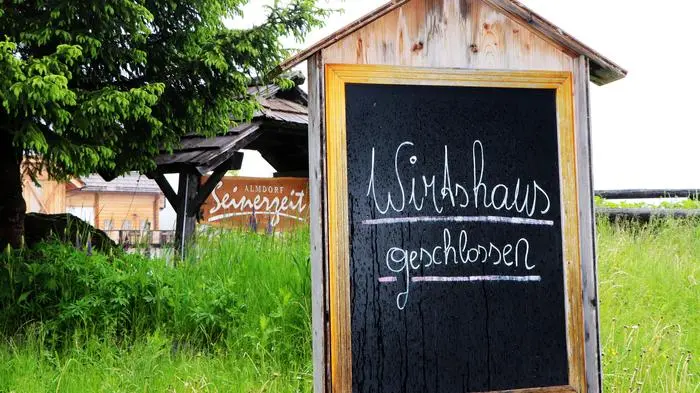 ALMDORF
Seinerzeit
Wirtshaus
geschlossen